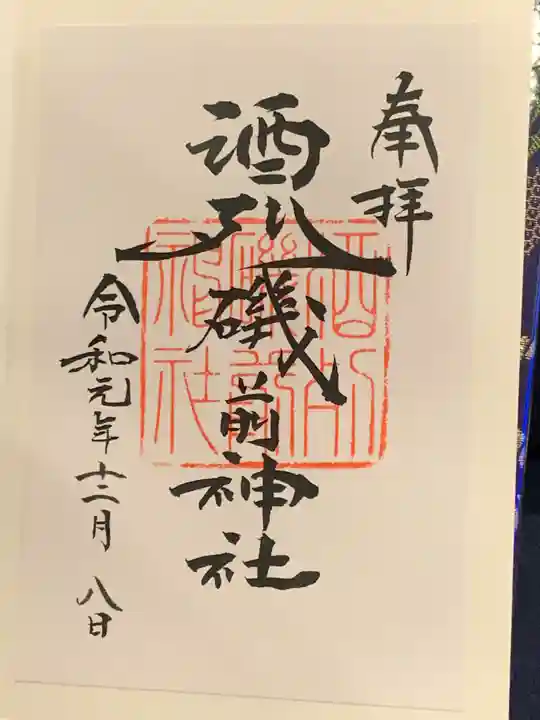 奉拝
酒列磯前神社
令和元年十二月八日
酒列
磯前
神社